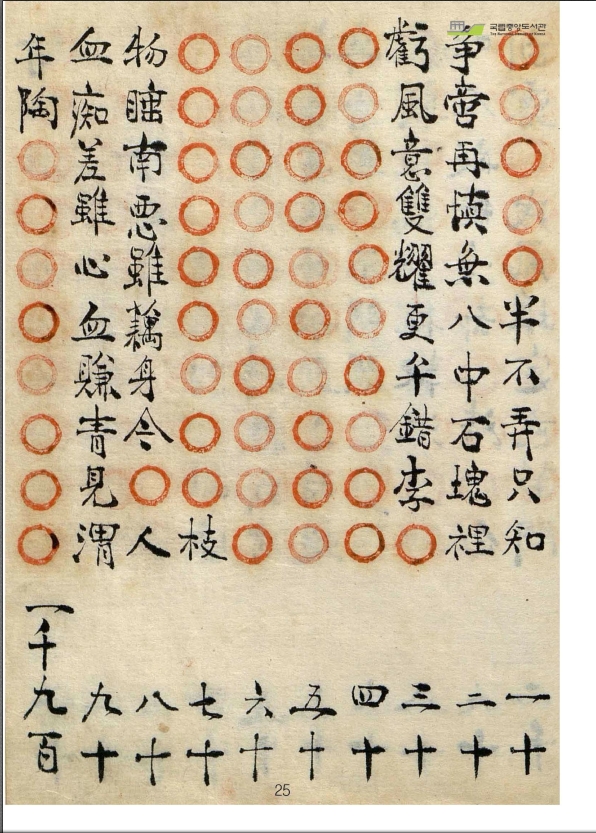 국립중앙도서관
半不弄只知 一十
争啻再慎無八中石瑰裡 二十
虧風意雙耀更千錯李 三十
四十
五十
六十
枝 七十
物南悪雖藕身令人 八十
血痴差雖心血賺青見渭 九十
年陶 一千九百
25